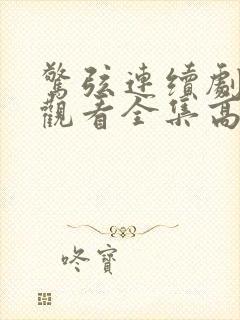 驚弦連續劇
觀看全集高
咚寶